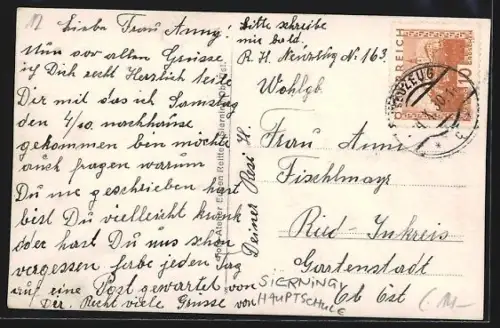 Liebe Frau Anny!
Nun vor allen Grüsse
ich Dich recht Herzlich teile
Dir mit das ich Samstag
den 4/10. nachhause
gekommen bin möchte
auch fragen warum
Du nie geschrieben hast
bist Du vielleicht krank
oder hast Du uns schon
vergessen habe jeden Tag
auf eine Post gewartet von
Dir. Recht viele Grüsse von
Deiner Resi H.
Bitte schreibe
mir bald.
R. H. Neuzeug N 163.
ÖSTERREICH
NEUZEUG
Wohlgb
Frau Anni
Fischlmayr
Ried-Innkreis
Gartenstadt
Ob Öst
SIERNING
HAUPTSCHULE